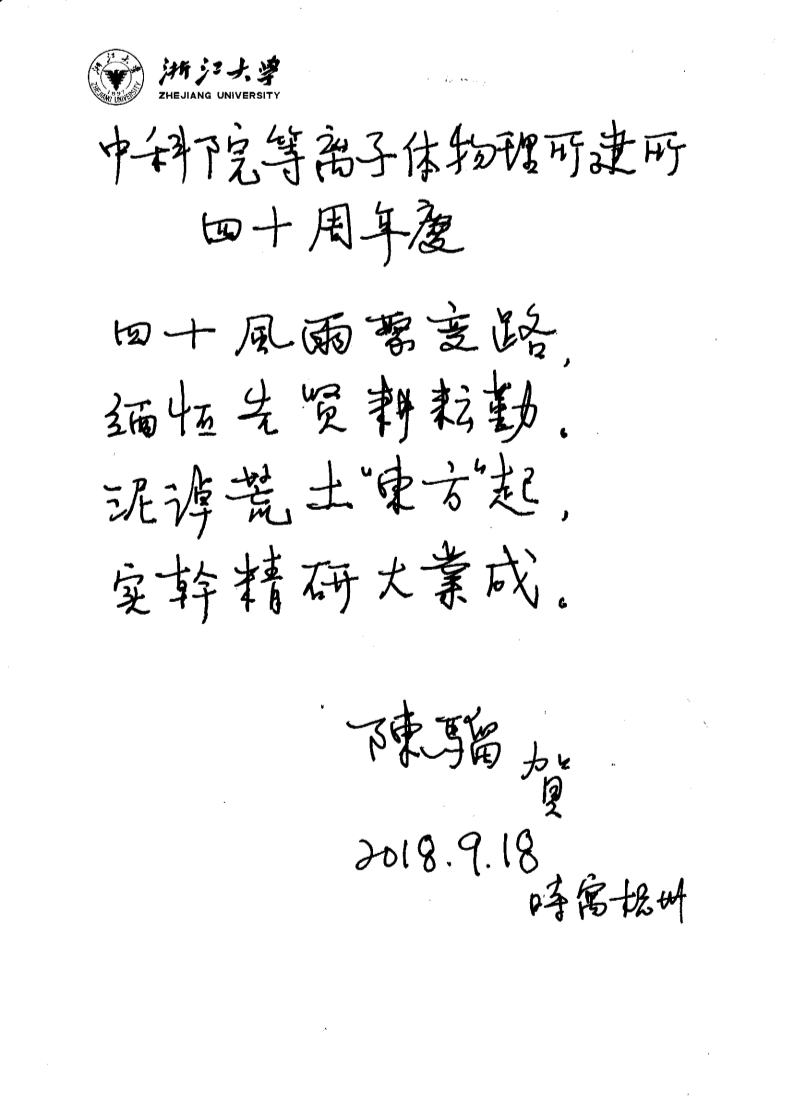 浙江大学
ZHEJIANG UNIVERSITY
中科院等离子体物理所建所
四十周年慶
四十風雨聚变路，
缅怀先贤耕耘勤。
泥泞荒土“東方”起，
实幹精研大業成。
陳騮 賀
2018.9.18
時寓杭州